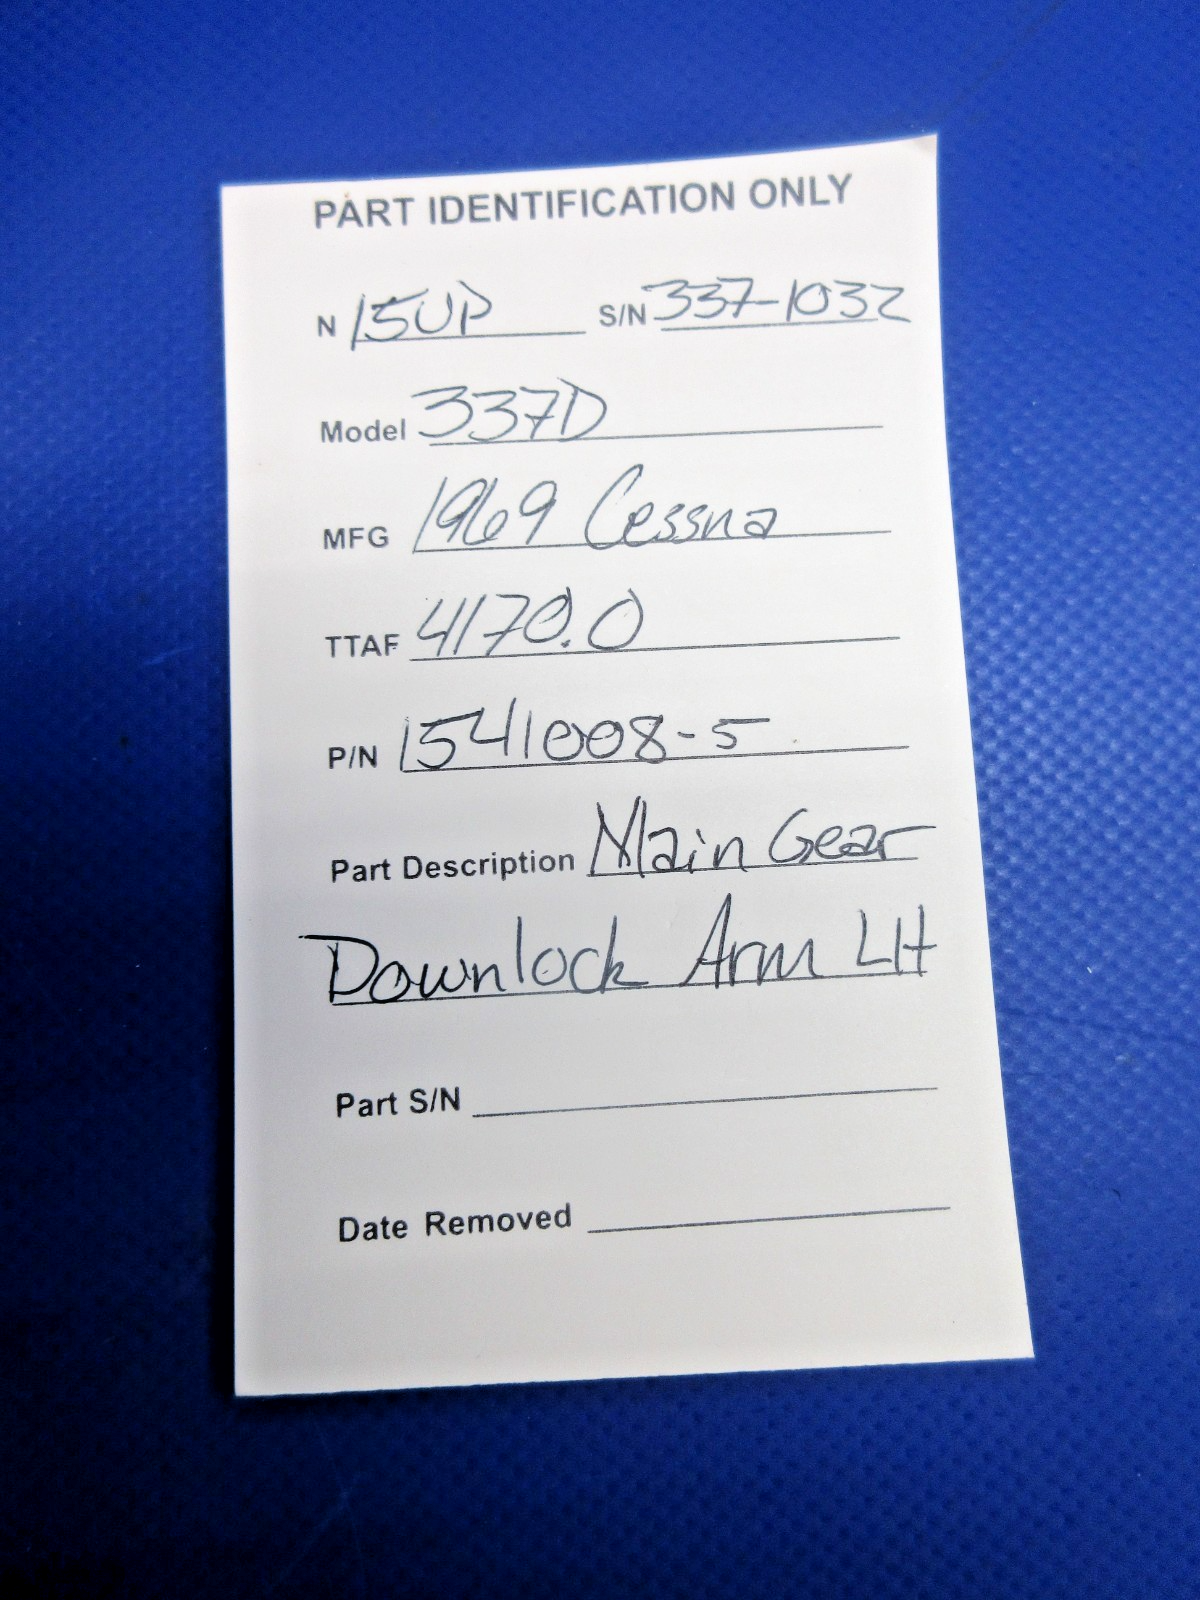 PART IDENTIFICATION ONLY
N 15UP S/N 337-1032
Model 337D
MFG 1969 Cessna
TTAF 4170.0
P/N 1541008-5
Part Description Main Gear
Downlock Arm LH
Part S/N
Date Removed